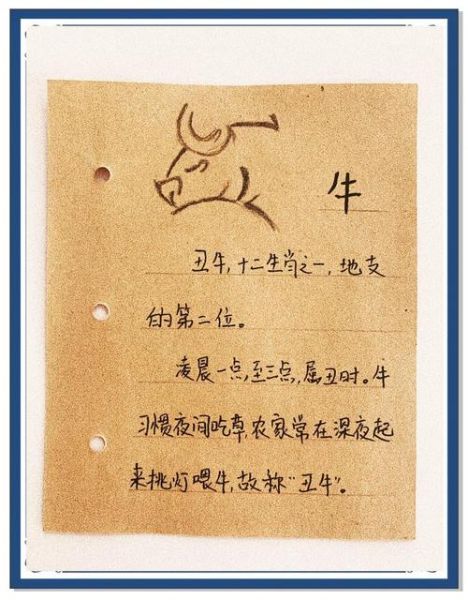 牛
丑牛,十二生肖之一,地支
的第二位。
凌晨一点,至三点,属丑时。牛
习惯夜间吃草,农家常在深夜起
来挑灯喂牛,故称“丑牛”。